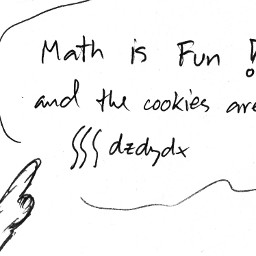 Math is Fun!
and the cookies are
∫∫∫ dzdydx